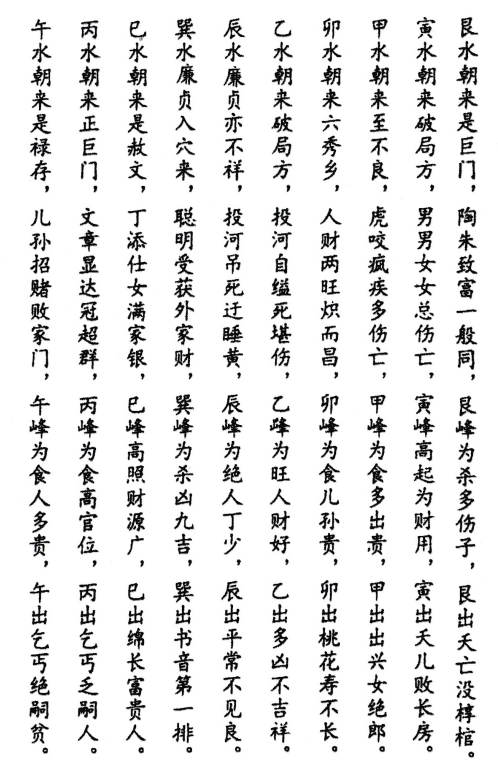 艮水朝来是巨门，陶朱致富一般同，艮峰为杀多伤子，艮出夭亡没椁棺。
寅水朝来破局方，男男女女总伤亡，寅峰高起为财用，寅出夭儿败长房。
甲水朝来至不良，虎咬疯疾多伤亡，甲峰为食多出贵，甲出出兴女绝郎。
卯水朝来六秀乡，人财两旺炽而昌，卯峰为食儿孙贵，卯出桃花寿不长。
乙水朝来破局方，投河自缢死堪伤，乙峰为旺人财好，乙出多凶不吉祥。
辰水廉贞亦不祥，投河吊死迂睡黄，辰峰为绝人丁少，辰出平常不见良。
巽水廉贞入穴来，聪明受获外家财，巽峰为杀凶九吉，巽出书音第一排。
巳水朝来是赦文，丁添仕女满家银，巳峰高照财源广，巳出绵长富贵人。
丙水朝来正巨门，文章显达冠超群，丙峰为食高官位，丙出乞丐乏嗣人。
午水朝来是禄存，儿孙招赌败家门，午峰为食人多贵，午出乞丐绝嗣贫。